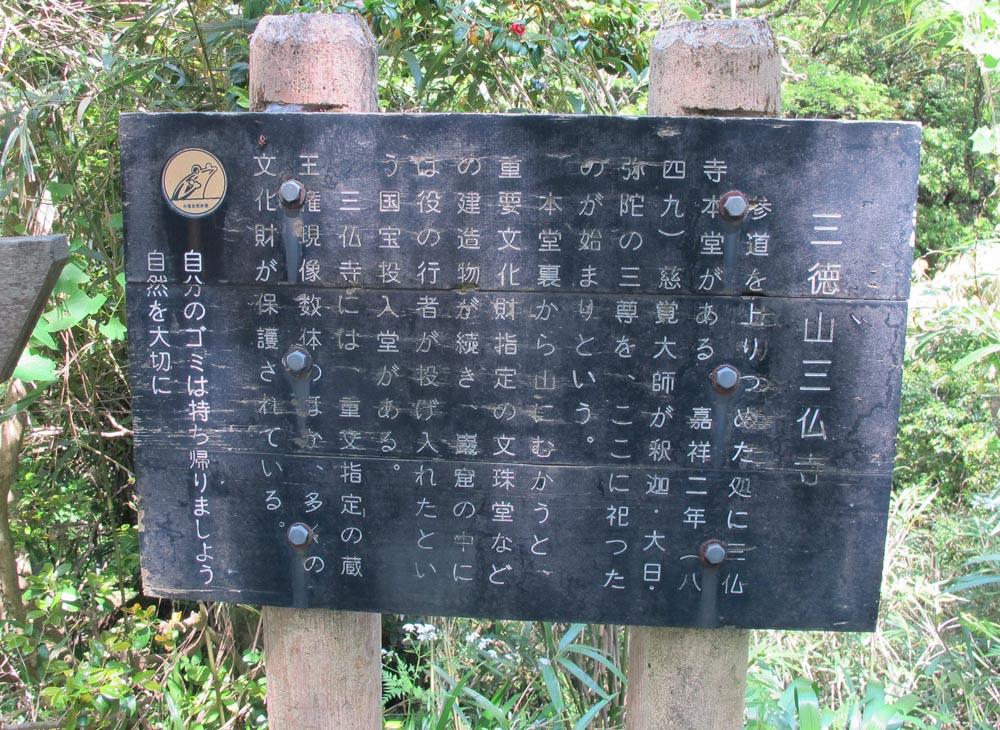 三徳山三仏寺
参道を上りつめた処に三仏
寺本堂がある。嘉祥二年（八
四九）慈覚大師が釈迦・大日・
弥陀の三尊を、ここに祀った
のが始まりという。
本堂裏から山にむかうと、
重要文化財指定の文珠堂など
の建造物が続き、巖窟の中に
は役の行者が投げ入れたとい
う国宝投入堂がある。
三仏寺には 重文指定の蔵
王権現像数体のほか、多くの
文化財が保護されている。
自分のゴミは持ち帰りましよう
自然を大切に